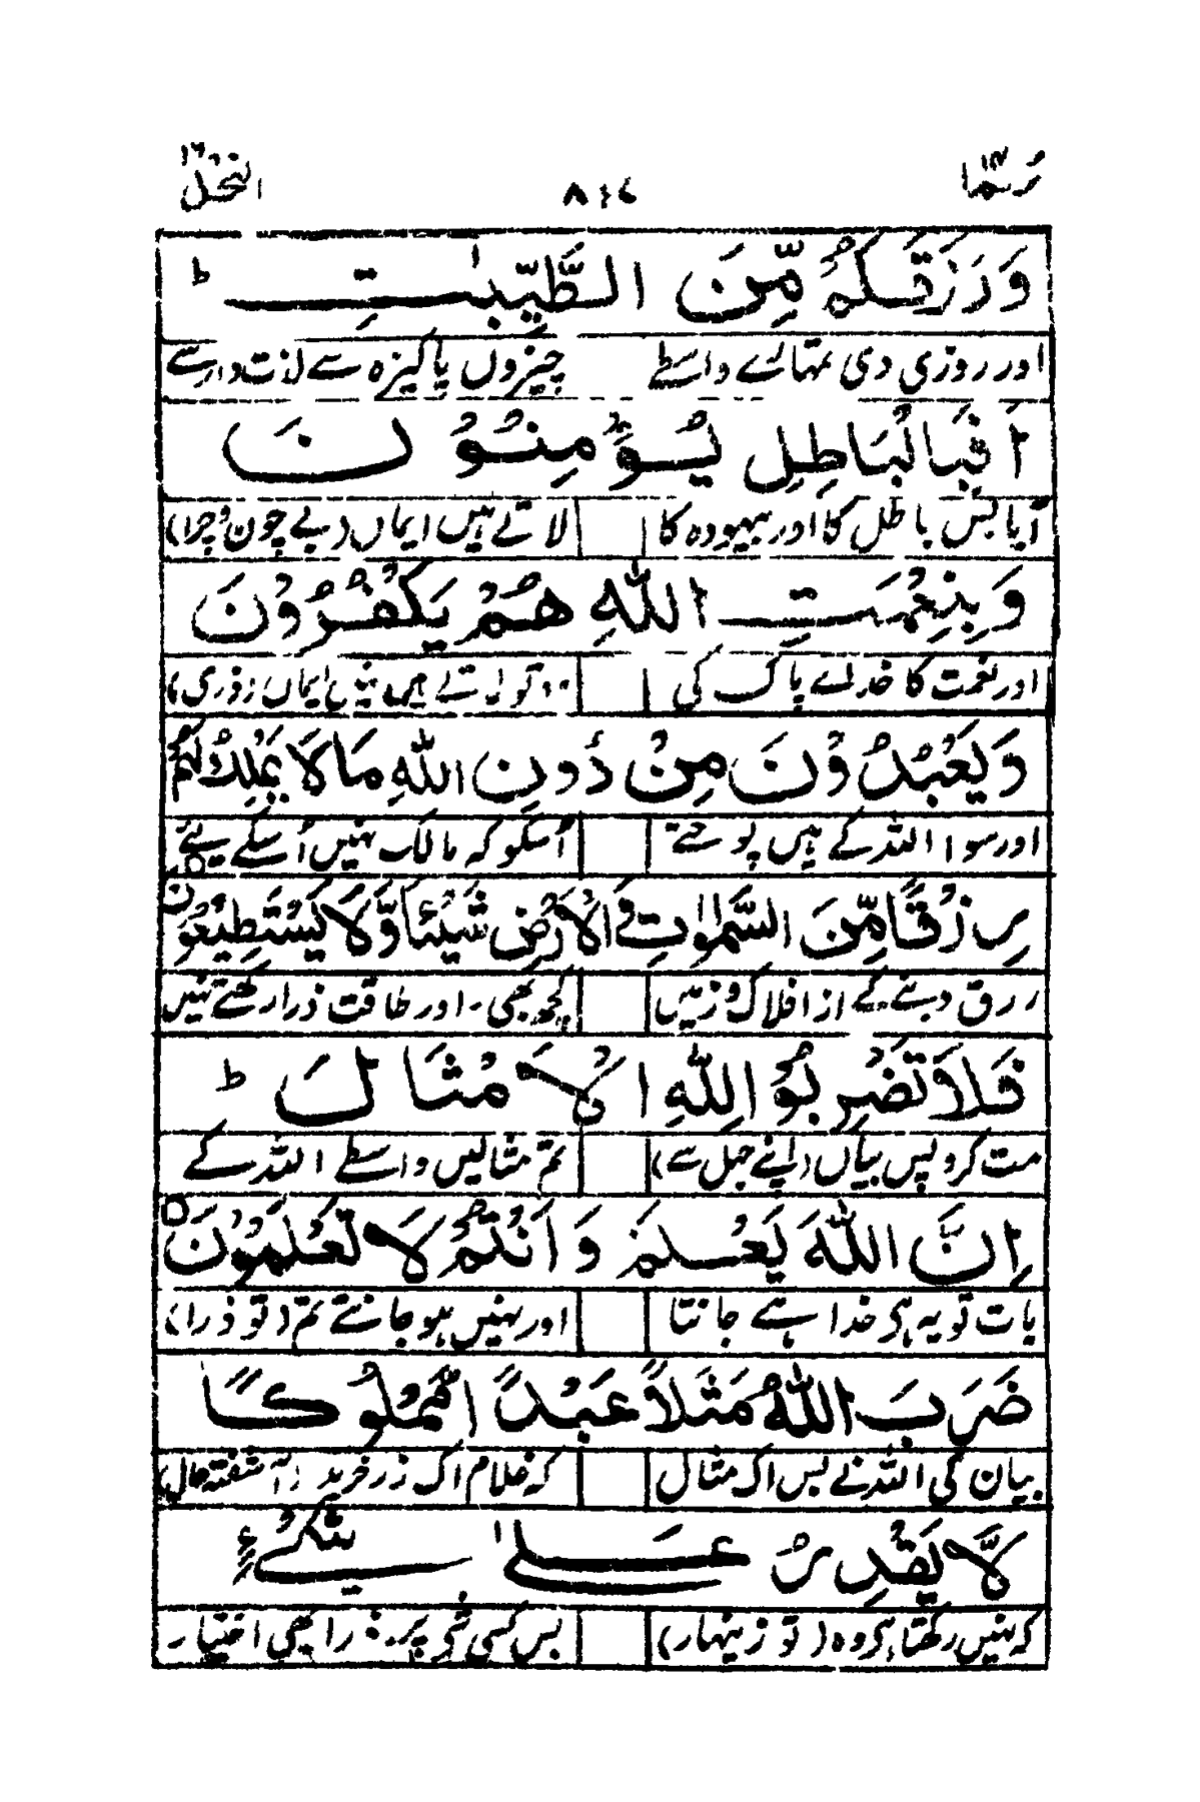 رُبَمَا ١٤ ٨١٤ النحل ١٦
وَرَزَقَكُمْ مِّنَ الطَّيِّبٰتِ ط
اور روزی دی تمہارے واسطے چیزوں پاکیزہ سے لذت دار سے
اَفَبِالْبَاطِلِ يُؤْمِنُوْنَ
آیا بس باطل کا اور بیہودہ کا لاتے ہیں ایماں (بے چون و چرا)
وَبِنِعْمَتِ اللّٰهِ هُمْ يَكْفُرُوْنَ
اور نعمت کا خدائے پاک کی لاتے ہیں نہیں ایماں
وَيَعْبُدُوْنَ مِنْ دُوْنِ اللّٰهِ مَا لَا يَمْلِكُ لَهُمْ
اور سوا اللہ کے ہیں پوجتے اُسکو کہ مالک نہیں اُسکے لیئے
رِزْقًا مِّنَ السَّمٰوٰتِ وَالْاَرْضِ شَيْئًا وَّلَا يَسْتَطِيْعُوْنَ
رزق دینے کے از افلاک و زمیں کچھ بھی۔ اور طاقت ذرا رکھتے نہیں
فَلَا تَضْرِبُوْا لِلّٰهِ الْاَمْثَالَ ط
مت کرو پس بیاں (اپنے جہل سے) تم مثالیں واسطے اللہ کے
اِنَّ اللّٰهَ يَعْلَمُ وَاَنْتُمْ لَا تَعْلَمُوْنَ
بات تو یہ ہی خدا ہے جانتا اور نہیں ہو جانتے تم (تو ذرا)
ضَرَبَ اللّٰهُ مَثَلًا عَبْدًا مَّمْلُوْكًا
بیان کی اللہ نے بس اک مثال کہ غلام اک زر خرید (آشفتہ حال)
لَّا يَقْدِرُ عَلٰى شَيْءٍ
کہ نہیں رکھتا ہی وہ (تو زینہار) بس کسی شی پر ذرا بھی اختیار